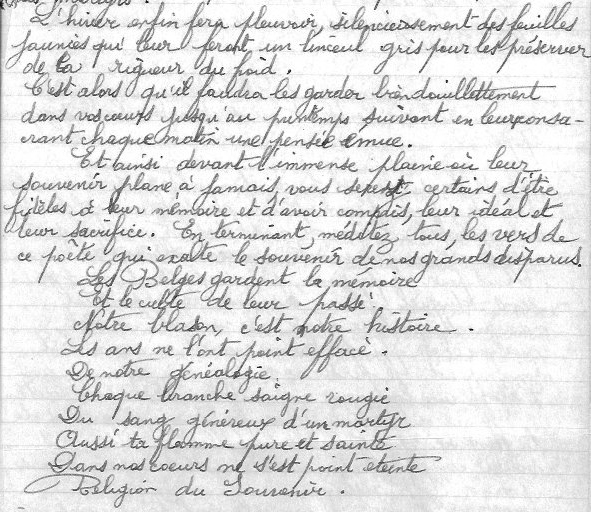 L'hiver enfin fera pleuvoir, silencieusement des feuilles
jaunies qui leur feront un linceul gris pour les préserver
de la rigueur du froid.
C'est alors qu'il faudra les garder bien douillettement
dans vos cœurs jusqu'au printemps suivant en leur consa-
crant chaque matin une pensée émue.
Et ainsi devant l'immense plaine où leur
souvenir plane à jamais, vous serez certains d'être
fidèles à leur mémoire et d'avoir compris, leur idéal et
leur sacrifice. En terminant, méditez, tous, les vers de
ce poète qui exalte le souvenir de nos grands disparus.
Les Belges gardent la mémoire
Et le culte de leur passé
Notre blason, c'est notre histoire.
Les ans ne l'ont point effacé.
De notre généalogie
Chaque branche saigne rougie
Du sang généreux d'un martyr
Aussi ta flamme pure et sainte
Dans nos coeurs ne s'est point éteinte
Religion du Souvenir.